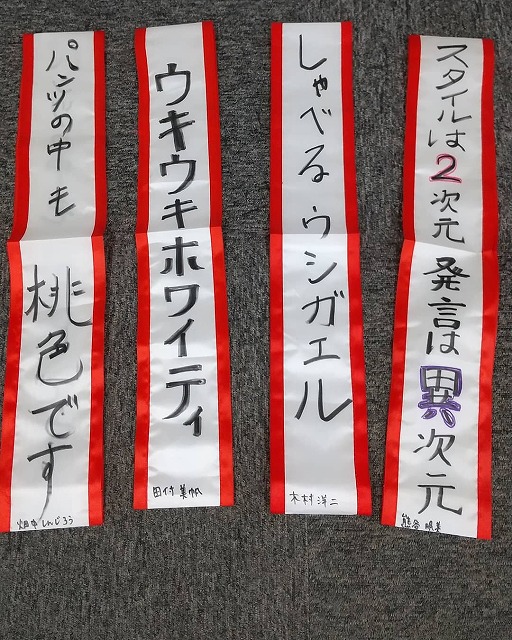 スタイルは2次元 発言は異次元
熊谷 明美
しゃべるウシガエル
木村 洋二
ウキウキホワイティ
田付 美帆
パンツの中も 桃色です
畑中 しんじろう